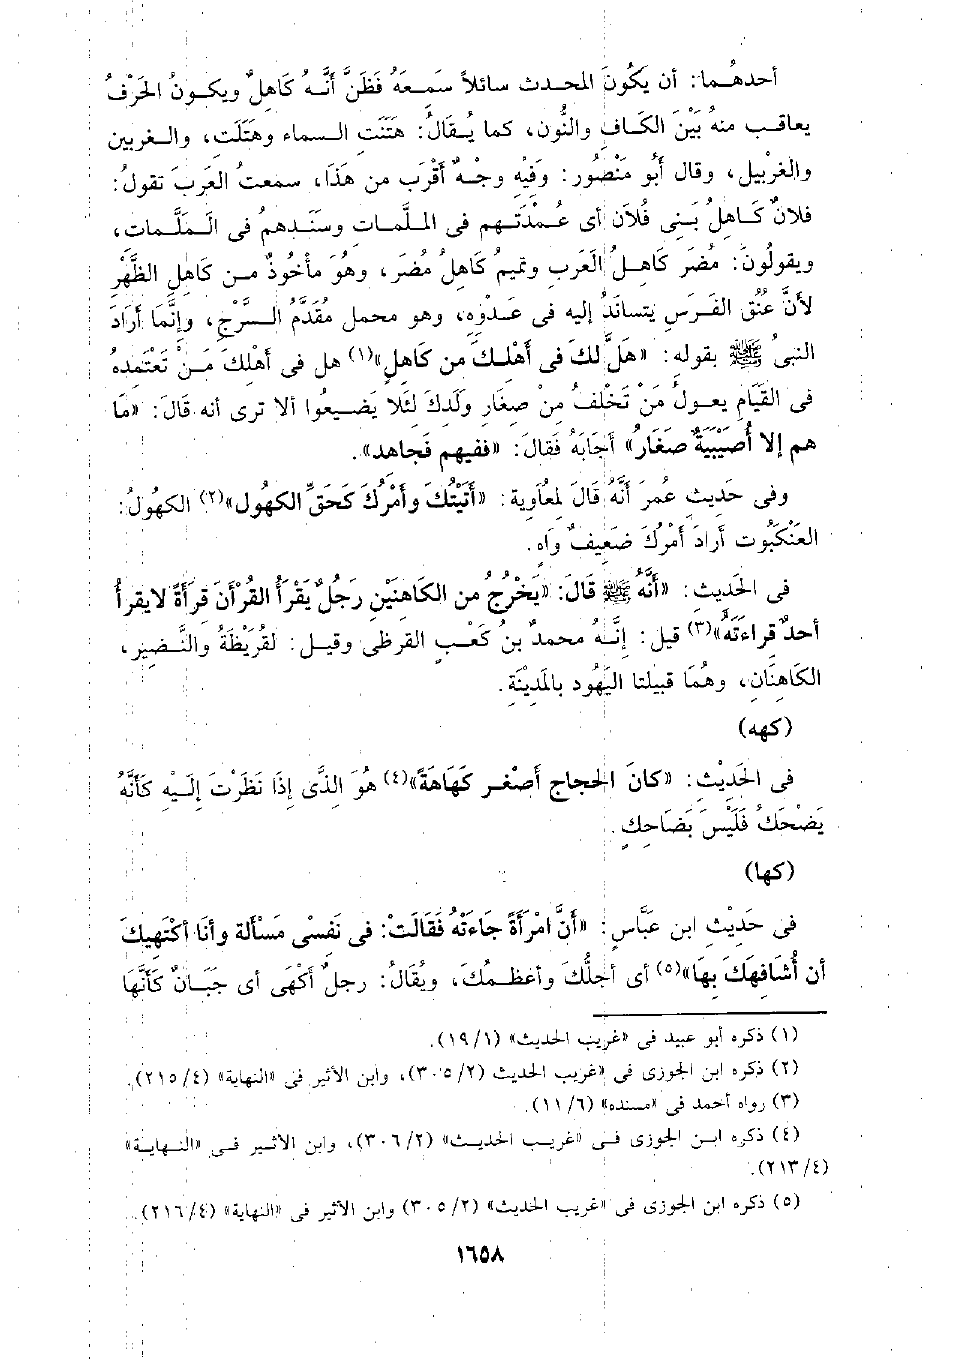 أحدهُما: أن يكُونَ المحدث سائلاً سَمعَهُ فَظَنَّ أَنَّهُ كَاهِلٌ ويكونُ الحَرْفُ
يعاقب منهُ بَيْنَ الكَافِ والنُّون، كما يُقَالُ: هَتَنَت السماء وهَتَلَت، والغربين
والغِرْبيل، وقال أَبُو مَنْصُور: وَفيْهِ وجهٌ أَقْرَب من هَذَا، سمعتُ العَربَ تقولُ:
فلانٌ كَاهِلُ بَنى فُلاَن أى عُمْدَتَهم فى الملَّمات وسَنَدهمُ فى الَملَّمات،
ويقولُونَ: مُضَر كَاهلُ العَربِ وتميمُ كَاهِلُ مُضَر، وهُوَ مأْخُوذٌ من كَاهِلِ الظَّهْرِ
لأنَّ عنُق الفَرَسِ يَتساندُ إليه فى عَدْوِه، وهو محمل مقُدَّم السَّرْج، وإنَّمَا أرَادَ
النبىُ ﷺ بقوله: «هَلْ لكَ فى أَهْلكَ من كَاهلِ»(١) هل فى أهْلِكَ مَنْ تَعْتَمِدهُ
فى القَيَامِ بعولُ مَنْ تَخْلفُ مِنْ صِغَارِ وَلَدِكَ لئَلا يَضيعُوا ألا ترى أنه قَالَ: «مَا
هم إلا أُصَيْبَيَةٌ صغَارُ» أجَابَهُ فَقَالَ: «ففيهم فَجاهد».
وفى حَديث عُمرَ أَنَّهُ قَالَ لمعَاوية: «أَتَيْتُكَ وأمْرُكَ كَحَقِّ الكهُول»(٢) الكهُولُ:
العَنْكَبُوت أَرادَ أَمْرُكَ ضَعيفٌ وَاه.
فى الحَديث: «أَنَّهُ ﷺ قَالَ: «يَخْرُجُ من الكاهنَيْنِ رَجُلٌ يَقْرَأُ القُرْأَنَ قرَأَةً لايقرأُ
أحدٌ قراءَتَهُ»(٣) قيل: إنَّهُ محمدُ بنُ كَعْبِ القرظى وقيل: لقُرَيْظَةُ والنَّضيرِ،
الكَاهِنَانِ، وهُمَا قبيلتا اليَهُود بالمَديْنَةِ.
(كهه)
فى الحَديْثِ: «كانَ الحجاج أَصْغر كَهَاهَةً»(٤) هُوَ الذَّى إذَا نَظَرْتَ إلَيْهِ كَأَنَّهُ
يَضْحَكُ فَلَيْسَ بَضَاحِكٍ.
(كها)
فى حَديْثِ ابن عَبَّاسٍ: «أَنَّ امْرَأَةً جَاءَتْهُ فَقَالَتْ: فى نَفْسْى مَسْأَلة وأنَا أكْتَهيكَ
أن أُشَافهَكَ بهَا»(٥) أى أجلُّكَ وأعظمُكَ، ويُقَالُ: رجلٌ أَكْهَى أى جَبَانٌ كَأَنَّهَا
(١) ذكره أبو عبيد فى «غريب الحديث» (١٩/١).
(٢) ذكره ابن الجوزى فى «غريب الحديث (٣٠٥/٢)، وابن الأثير فى «النهاية» (٢١٥/٤).
(٣) رواه أحمد فى «مسنده» (١١/٦).
(٤) ذكره ابن الجوزى فى «غريب الحديث» (٣٠٦/٢)، وابن الأثير فى «النهاية»
(٢١٣/٤).
(٥) ذكره ابن الجوزى فى «غريب الحديث» (٣٠٥/٢) وابن الأثير فى «النهاية» (٢١٦/٤).
١٦٥٨